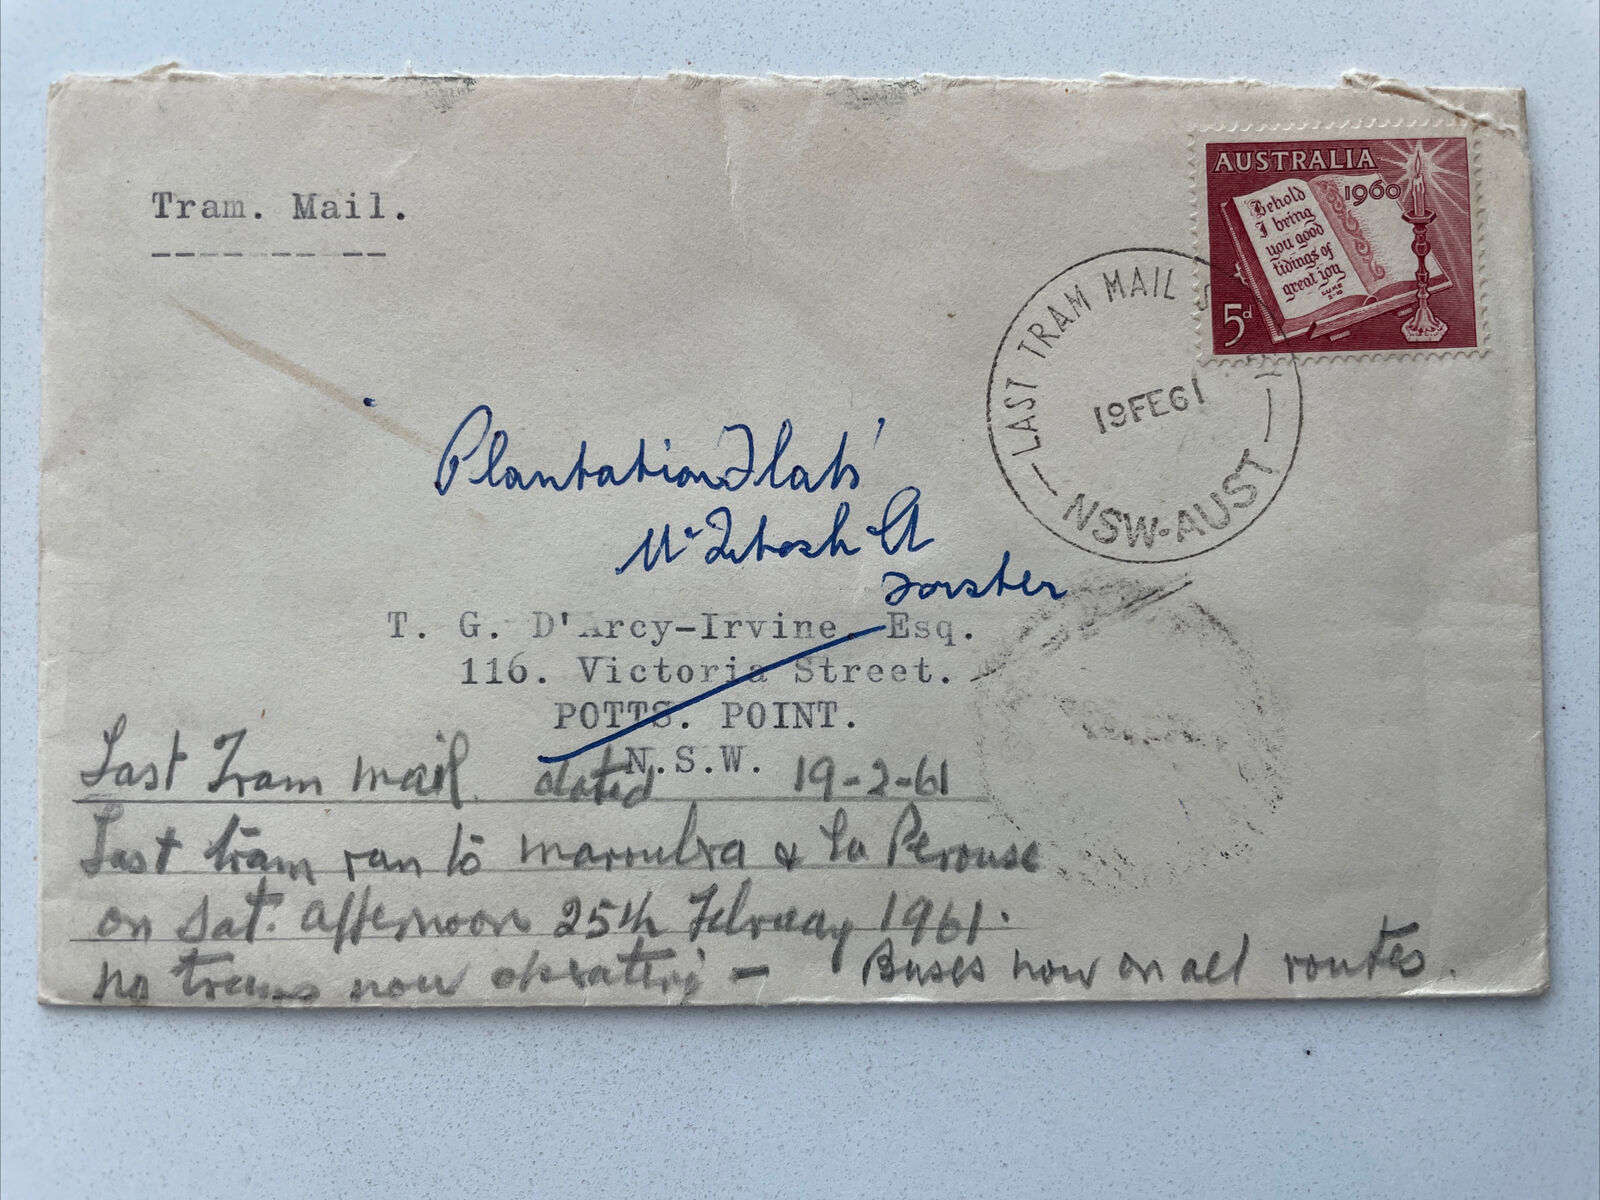 Tram. Mail.
AUSTRALIA
1960
Behold
I bring
you good
tidings of
great joy
LUKE
2-10
5d
LAST TRAM MAIL
19FE61
NSW-AUST
Plantation Flats'
McIntosh St
Forster
T. G. D'Arcy-Irvine. Esq.
116. Victoria Street.
POTTS. POINT.
N.S.W.
Last Tram mail dated 19-2-61
Last tram ran to maroubra & La Perouse
on Sat. afternoon 25th February 1961.
no trams now operating - Buses now on all routes.